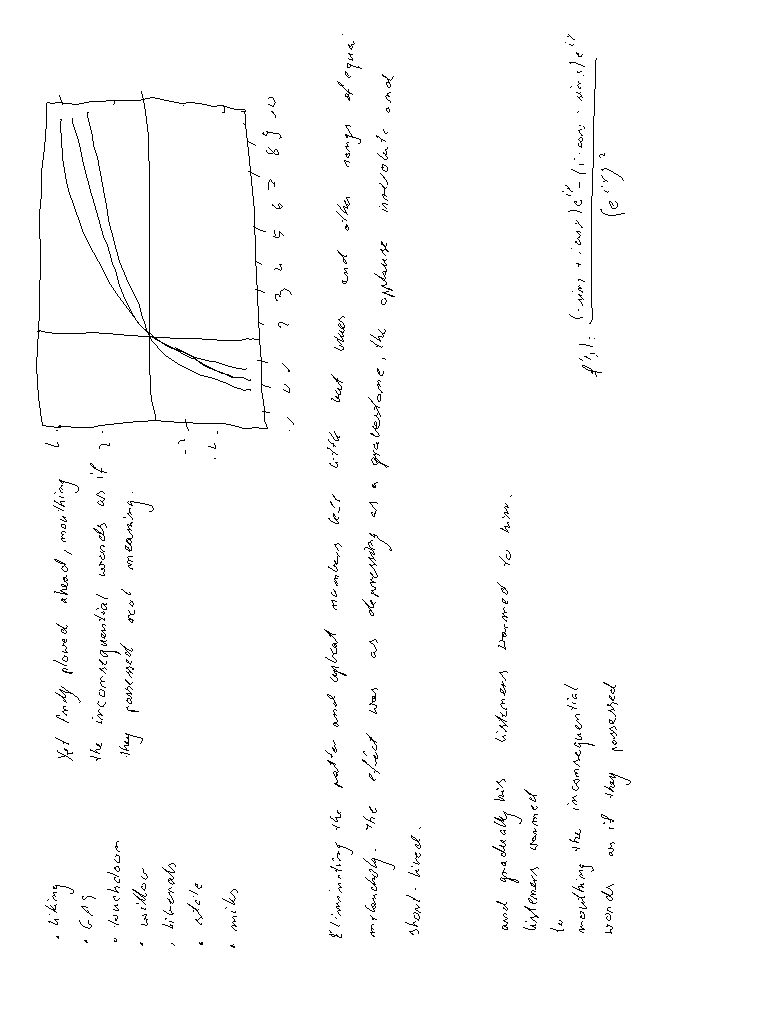 • liking
• GAS
• touchdown
• willow
• liberals
• stole
• miles
Yet Andy plowed ahead, mouthing
the inconsequential words as if
they possessed real meaning.
4
2
-2
-4
-1 0 1 2 3 4 5 6 7 8 9 10
Eliminating the patter and upbeat numbers left little but blues and other songs of equal
melancholy. The effect was as depressing as a gravestone, the applause irresolute and
short-lived.
and gradually his listeners warmed to him.
listeners warmed
to
mouthing the inconsequential
words as if they possessed